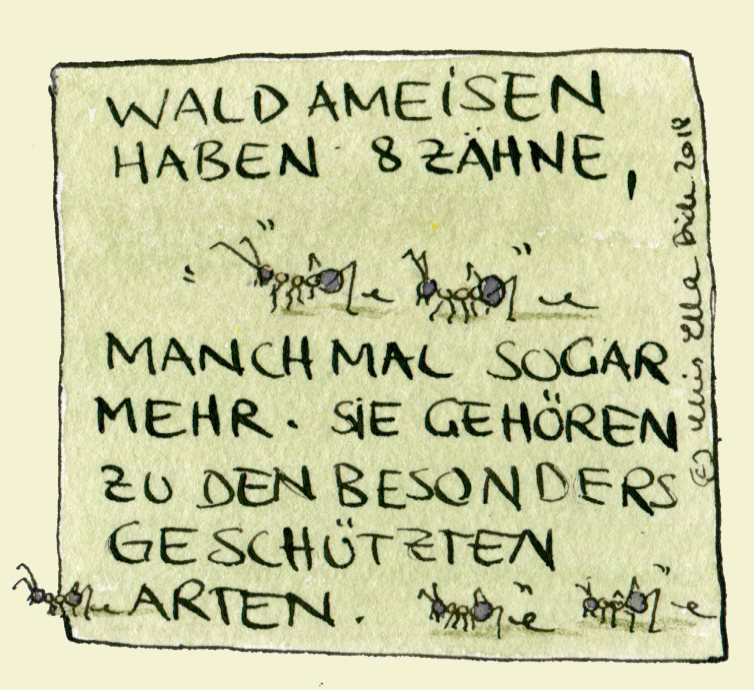 WALDAMEISEN
HABEN 8 ZÄHNE,
MANCHMAL SOGAR
MEHR. SIE GEHÖREN
ZU DEN BESONDERS
GESCHÜTZTEN
ARTEN.
Ella 2018